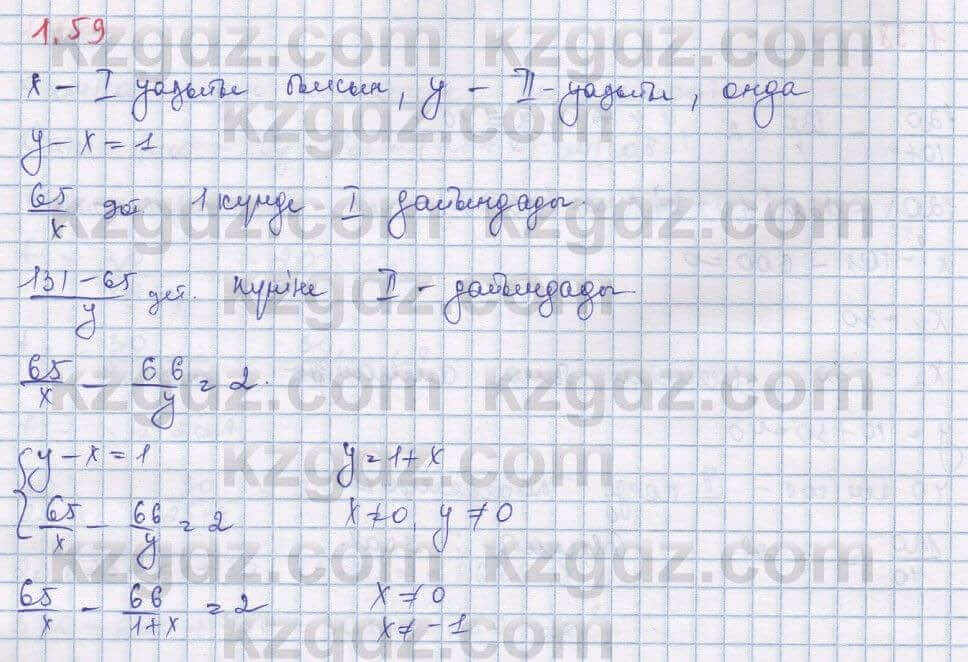 1.59
x – I уақыты болсын, y – II-уақыты, онда
y – x = 1
65/x дет. 1 күнде I дайындады.
(131 – 65)/y дет. күніне II – дайындады
65/x – 66/y = 2.
{ y – x = 1      y = 1 + x
65/x – 66/y = 2      x ≠ 0, y ≠ 0
65/x – 66/(1+x) = 2      x ≠ 0
x ≠ –1
kzgdz.com kzgdz.com
kzgdz.com
kzgdz.com kzgdz.com
kzgdz.com
kzgdz.com kzgdz.com
kzgdz.com
kzgdz.com kzgdz.com
kzgdz.com